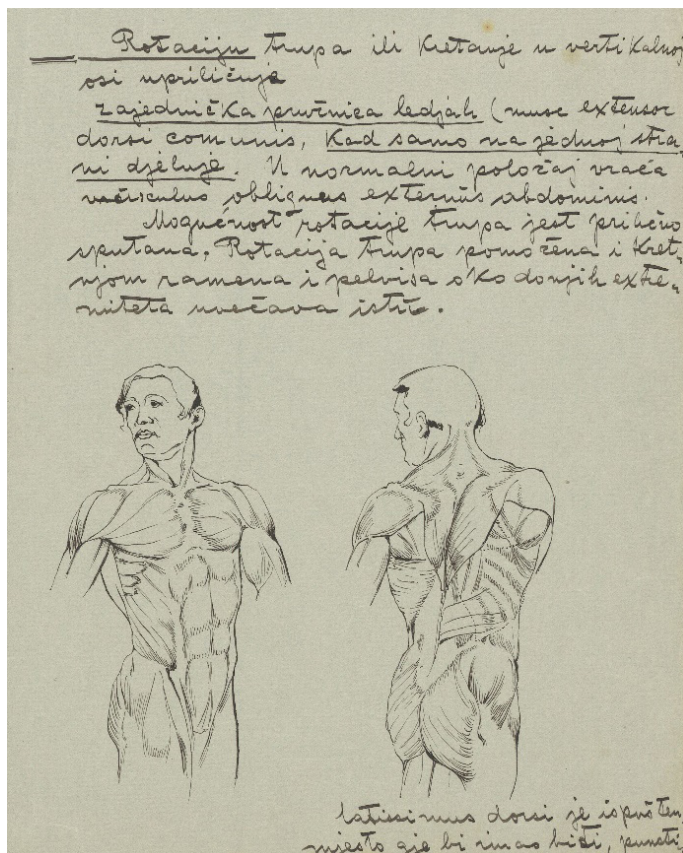 Rotaciju trupa ili kretanje u vertikalnoj
osi upriličuje
zajednička pružnica ledjah (musc extensor
dorsi comunis, kad samo na jednoj stra„
ni djeluje. U normalni položaj vraća
obliquus externus abdominis.
Mogućnost rotacije trupa jest prilično
sputana. Rotacija trupa pomožena i kret„
njom ramena i pelvisa oko donjih extre„
miteta uvećava istu.
latissimus dorsi je ispušten
mjesto gje bi imao biti, puncti,